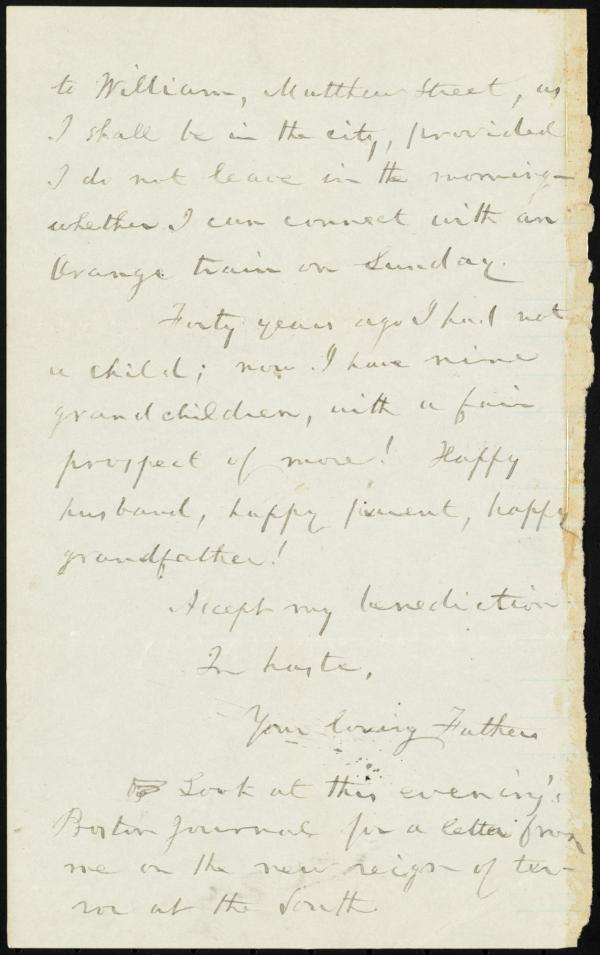 to William, Matthew Street, as
I shall be in the city, provided
I do not leave in the morning—
whether I can connect with an
Orange train on Sunday.
Forty years ago I had not
a child; now I have nine
grandchildren, with a fair
prospect of more! Happy
husband, happy parent, happy
grandfather!
Accept my benediction.
In haste,
Your loving Father
☞ Look at this evening's
Boston Journal for a letter from
me on the new reign of ter-
ror at the South.